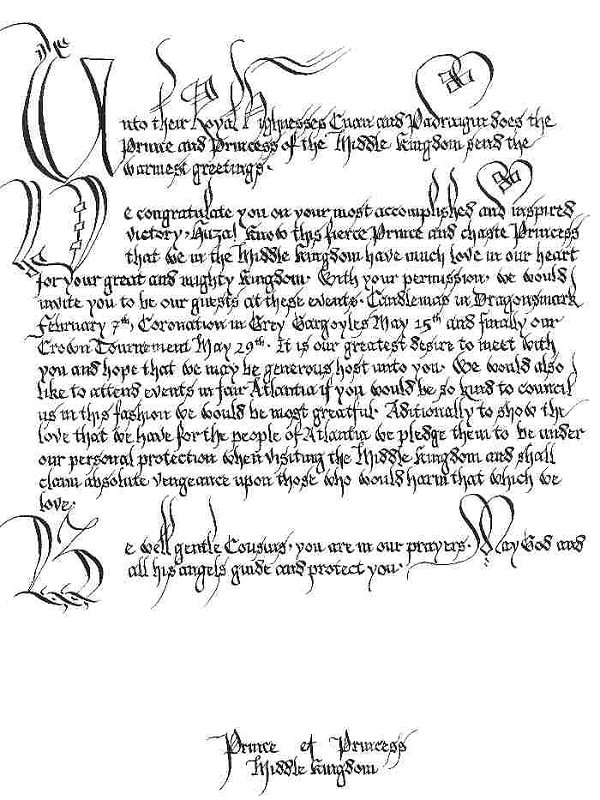 Unto their Royal Highnesses Cuan and Padraigin does the
Prince and Princess of the Middle Kingdom send the
warmest greetings.
We congratulate you on your most accomplished and inspired
victory, Huzal Know this fierce Prince and chaste Princess
that we in the Middle Kingdom have much love in our heart
for your great and mighty Kingdom. With your permission, we would
invite you to be our guests at these events. Candlemas in Dragonsmark
February 7th, Coronation in Grey Gargoyles May 15th and finally our
Crown Tournement May 29th. It is our greatest desire to meet with
you and hope that we may be generous host unto you. We would also
like to attend events in fair Atlantia if you would be so kind to council
us in this fashion we would be most greatful. Aditionally to show the
love that we have for the people of Atlantia we pledge them to be under
our personal protection when visiting the Middle Kingdom and shall
claim absolute vengeance upon those who would harm that which we
love.
Be well gentle Cousins, you are in our prayers. May God and
all his angels guide and protect you.
Prince et Princess
Middle Kingdom